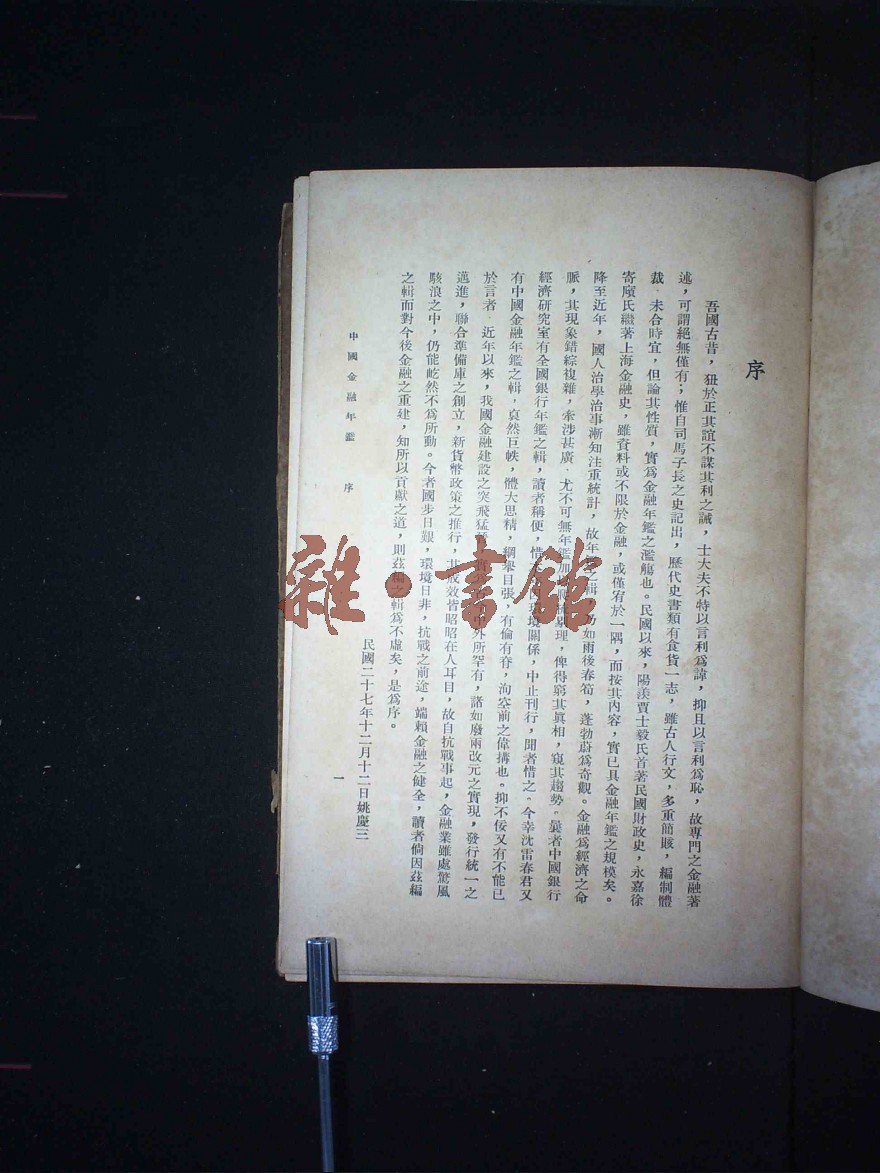 序
吾國古昔，狃於正其誼不謀其利之誡，士大夫不特以言利爲諱，抑且以言利爲恥，故專門之金融著
述，可謂絕無僅有；惟自司馬子長之史記出，歷代史書類有食貨一志，雖古人行文，多重簡賅，編制體
裁，未合時宜，但論其性質，實爲金融年鑑之濫觴也。民國以來，陽羨賈士毅氏首著民國財政史，永嘉徐
寄廎氏繼著上海金融史，雖資料或不限於金融，或僅宥於一隅，而按其內容，實已具金融年鑑之規模矣。
降至近年，國人治學治事漸知注重統計，故年之輯，乃如雨後春筍，蓬勃蔚爲奇觀。金融爲經濟之命
脈，其現象錯綜複雜，牽涉甚廣，尤不可無年鑑加理，俾得窮其眞相，窺其趨勢。曩者中國銀行
經濟研究室有全國銀行年鑑之輯，讀者稱便，惜環境關係，中止刊行，聞者惜之。今幸沈雷春君又
有中國金融年鑑之輯，裒然巨帙，體大思精，綱舉目張，有倫有脊，洵空前之偉搆也。抑不佞又有不能已
於言者，近年以來，我國金融建設之突飛猛中外所罕有，諸如廢兩改元之實現，發行統一之
邁進，聯合準備庫之創立，新貨幣政策之推行，其成效皆昭昭在人耳目，故自抗戰事起，金融業雖處驚風
駭浪之中，仍能屹然不爲所動。今者國步日艱，環境日非，抗戰之前途，端賴金融之健全，讀者倘因茲編
之輯而對今後金融之重建，知所以貢獻之道，則茲編之輯爲不虛矣，是爲序。
民國二十七年十二月十二日姚慶三
中國金融年鑑 序
一
雜·書館